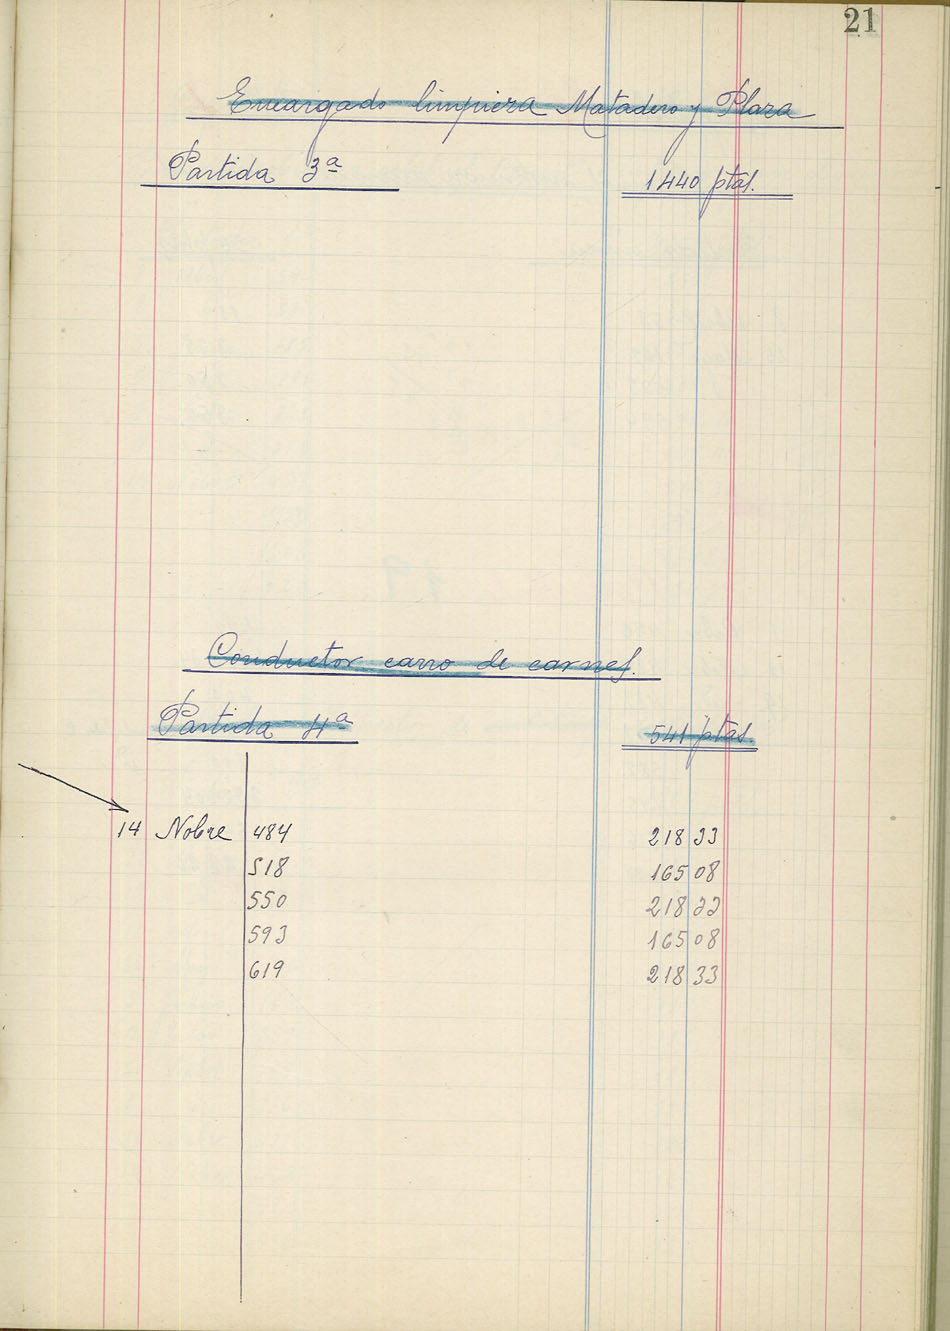 21
Encargado limpieza Matadero y Plaza
Partida 3ª 1440 ptas.
Conductor carro de carnes.
Partida 4ª 541 ptas.
14 Nobre 484 218 33
518 165 08
550 218 33
593 165 08
619 218 33